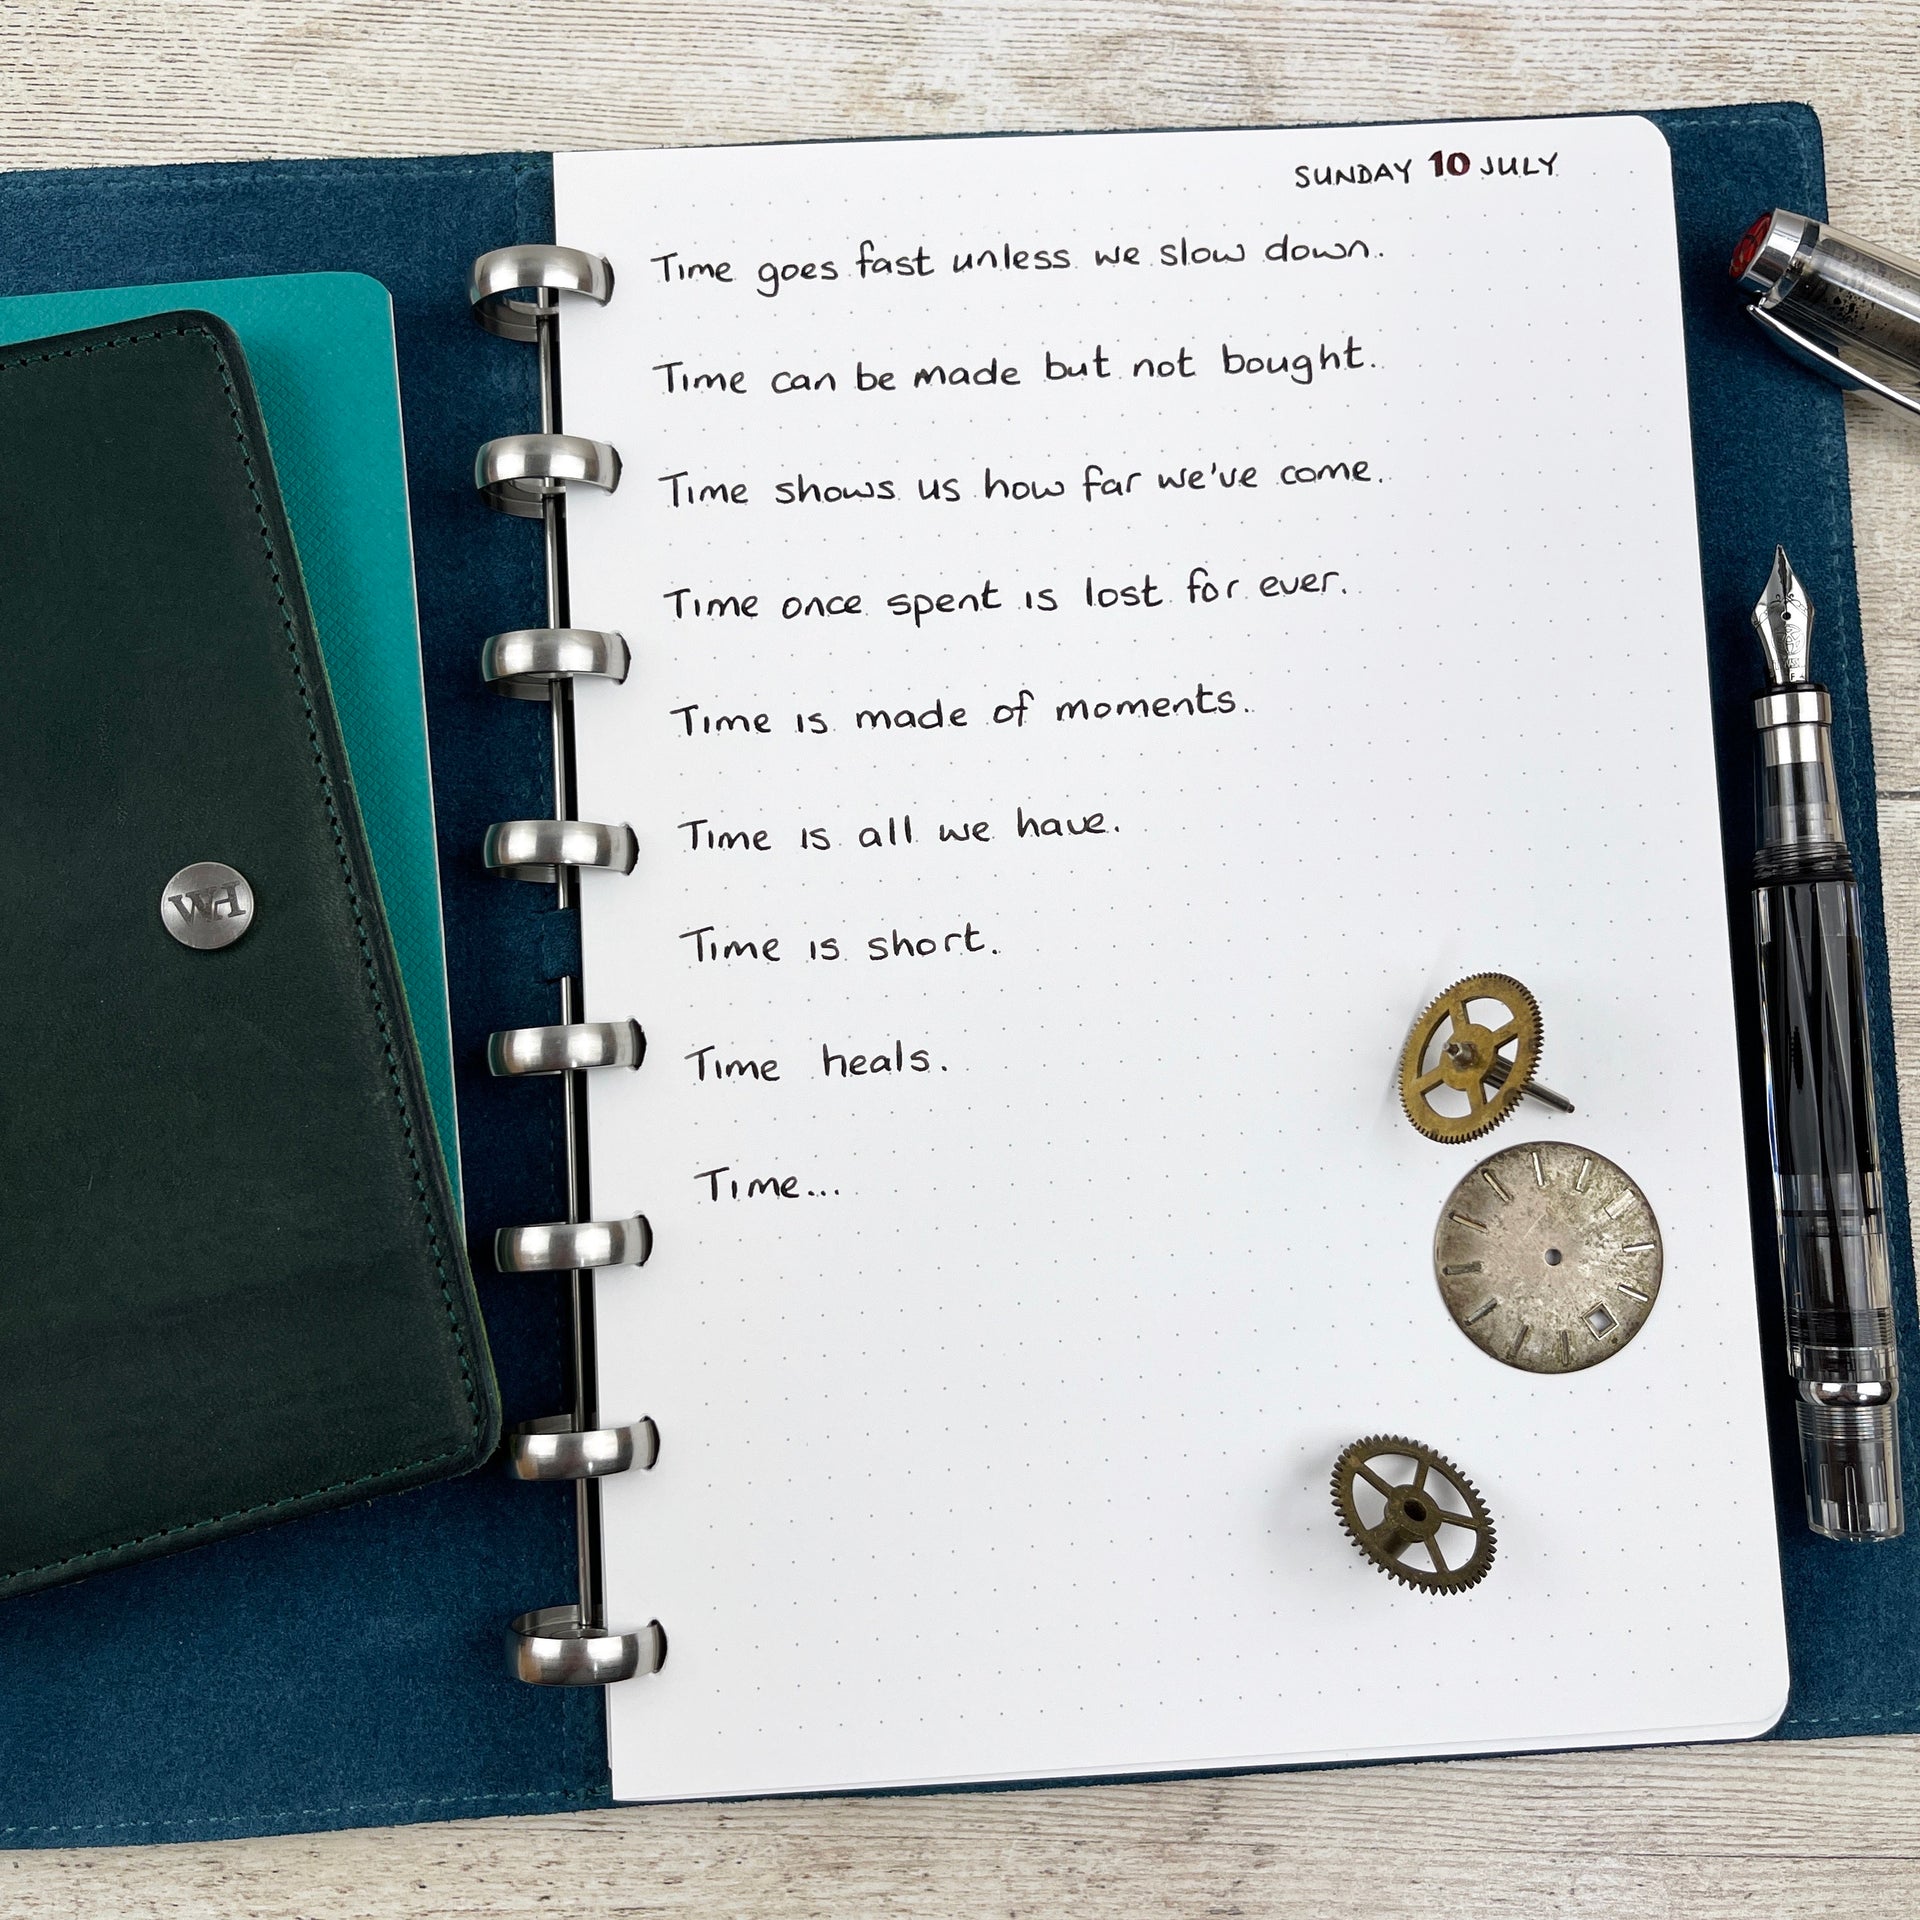 SUNDAY 10 JULY
Time goes fast unless we slow down.
Time can be made but not bought.
Time shows us how far we've come.
Time once spent is lost for ever.
Time is made of moments.
Time is all we have.
Time is short.
Time heals.
Time...
WH